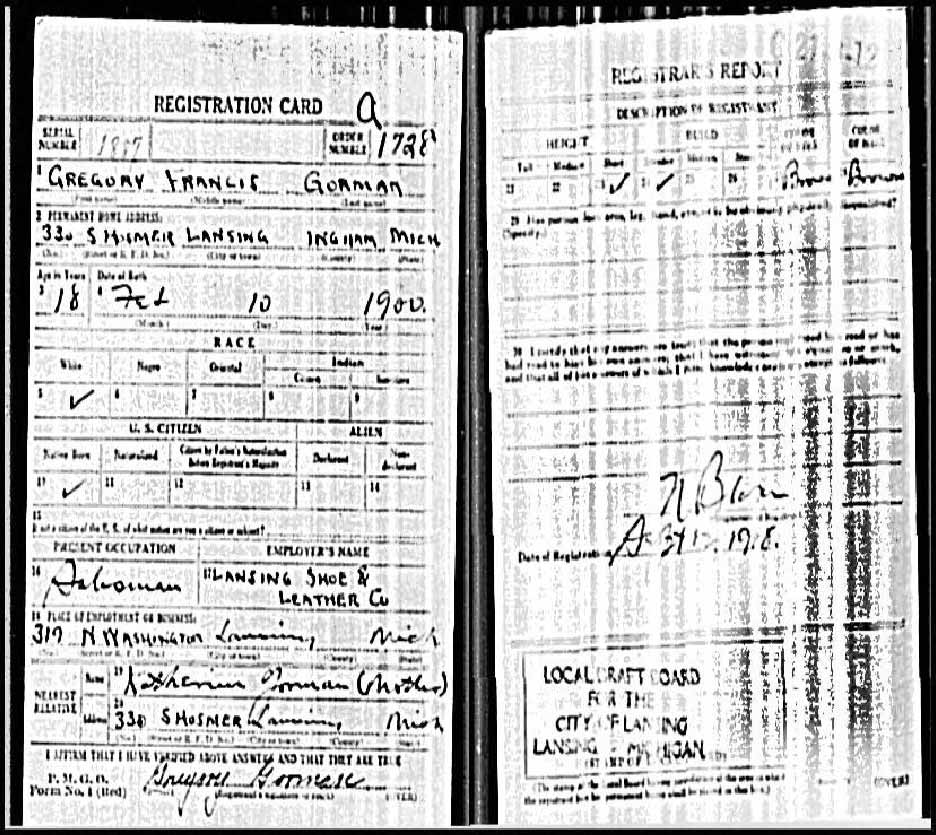 REGISTRATION CARD A
SERIAL NUMBER 1807 ORDER NUMBER 1728
1 GREGORY FRANCIS GORMAN
(First name) (Middle name) (Last name)
2 PERMANENT HOME ADDRESS:
330 S HOSMER LANSING INGHAM MICH
(No.) (Street or R. F. D. No.) (City or town) (County) (State)
Age in Years Date of Birth
3 18 4 Feb 10 1900.
(Month.) (Day.) (Year.)
RACE
White Negro Oriental Indian
Citizen
5 ✓ 6 7 8 9
U. S. CITIZEN ALIEN
Native Born Naturalized Citizen by Father's Naturalization Before Registrant's Majority Declarant Non-declarant
10 ✓ 11 12 13 14
15
If not a citizen of the U. S. of what nation are you a citizen or subject?
PRESENT OCCUPATION EMPLOYER'S NAME
16 Salesman 17 LANSING SHOE &
LEATHER CO
18 PLACE OF EMPLOYMENT OR BUSINESS:
317 N WASHINGTON Lansing, Mich
(No.) (Street or R. F. D. No.) (City or town) (County) (State)
NEAREST RELATIVE Name 19 Katherine Gorman (Mother)
Address 20 330 S HOSMER Lansing, Mich
(No.) (Street or R. F. D. No.) (City or town) (County) (State)
I AFFIRM THAT I HAVE VERIFIED ABOVE ANSWERS AND THAT THEY ARE TRUE
P. M. G. O.
Form No. 1 (Red) Gregory Gorman
(Registrant's signature or mark) (OVER)
REGISTRAR'S REPORT
DESCRIPTION OF REGISTRANT
HEIGHT BUILD COLOR OF EYES COLOR OF HAIR
Tall Medium Short Slender Medium Stout
21 22 23 ✓ 24 ✓ 25 26 Brown Brown
29 Has person lost arm, leg, hand, eye, or is he obviously physically disqualified?
(Specify.)
30 I certify that my answers are true; that the person registered has read or has
had read to him his own answers; that I have witnessed his signature or mark,
and that all of his answers of which I have knowledge are true, except as follows:
Date of Registration 12, 1918.
LOCAL DRAFT BOARD
FOR THE
CITY OF LANSING
LANSING - MICHIGAN
(The stamp of the Local Board having jurisdiction of the area in which
the registrant has his permanent home shall be placed in this box.)
(OVER)